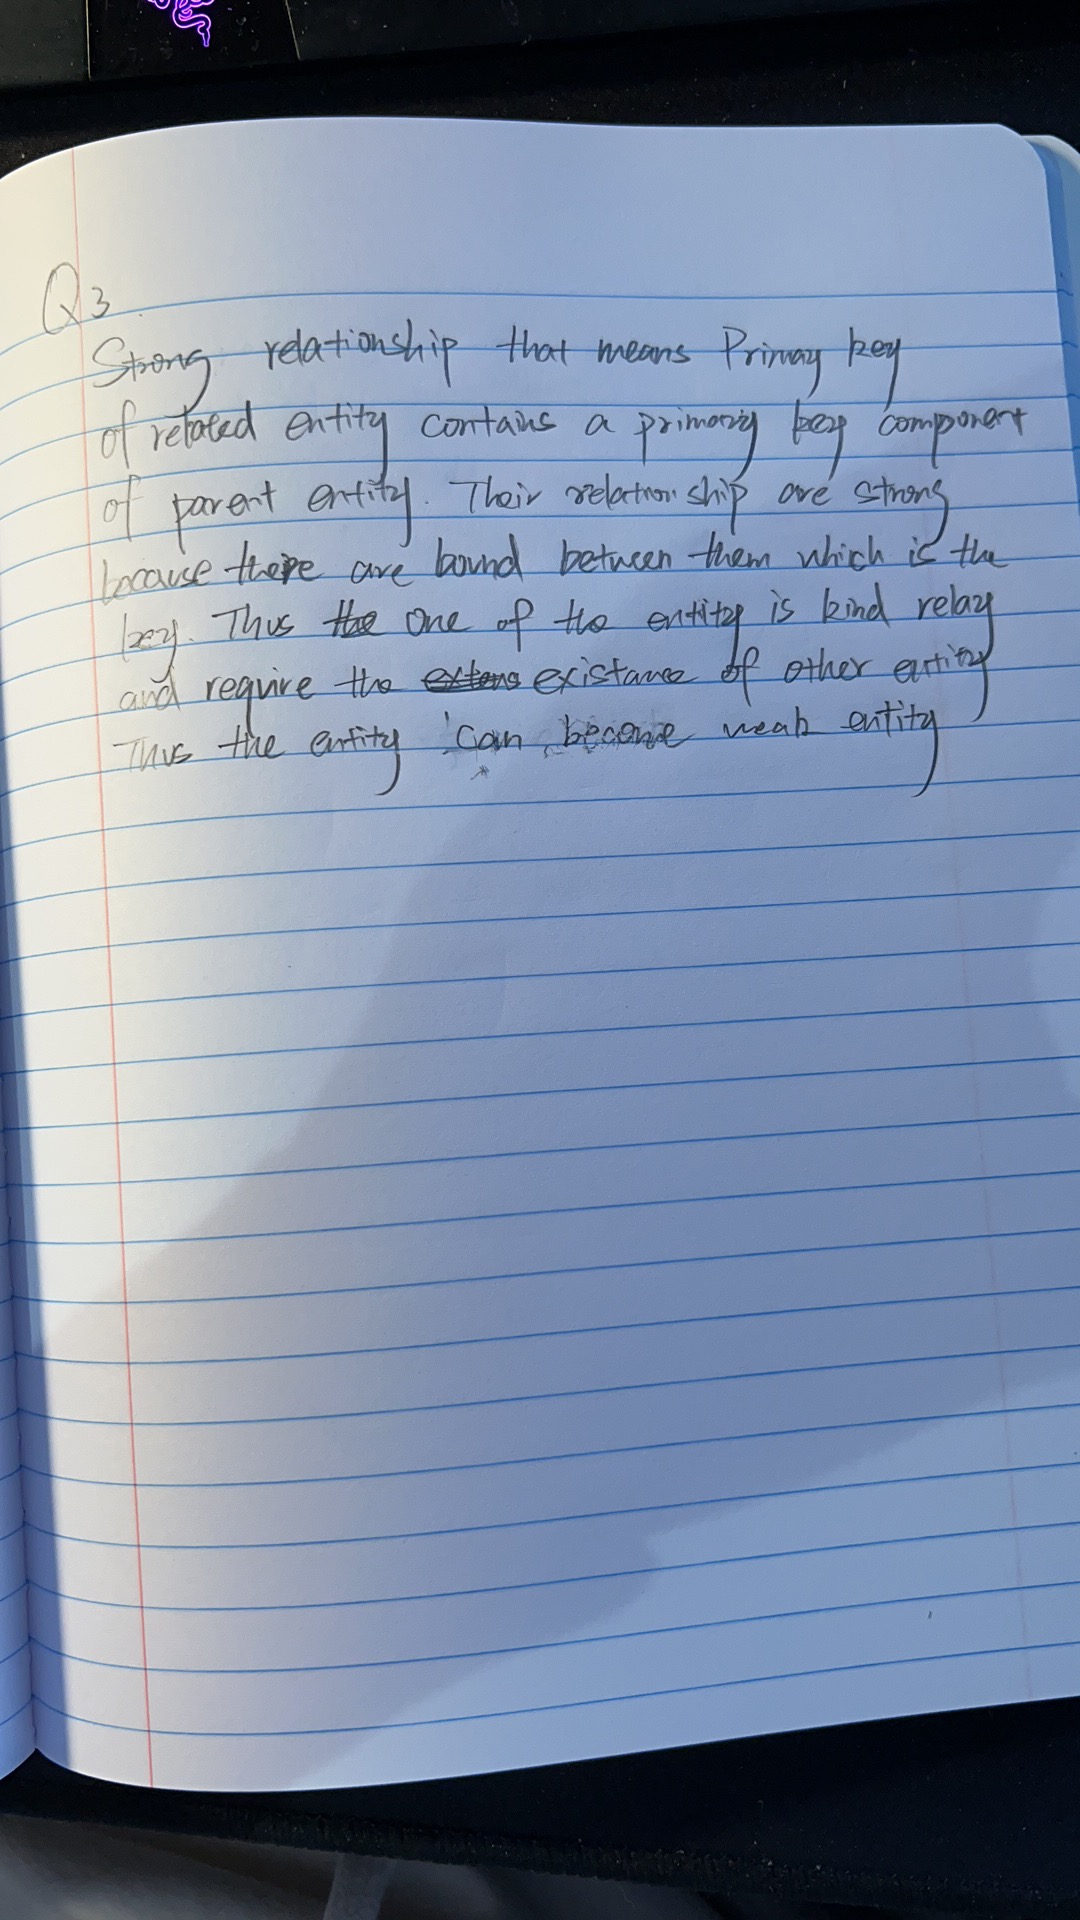 Q3.
Strong relationship that means Primay key
of related entity contains a primary key component
of parent entity. Their relationship are strong
because there are bound between them which is the
key. Thus the One of the entity is kind relay
and require the existance of other entity
Thus the entity can become weak entity